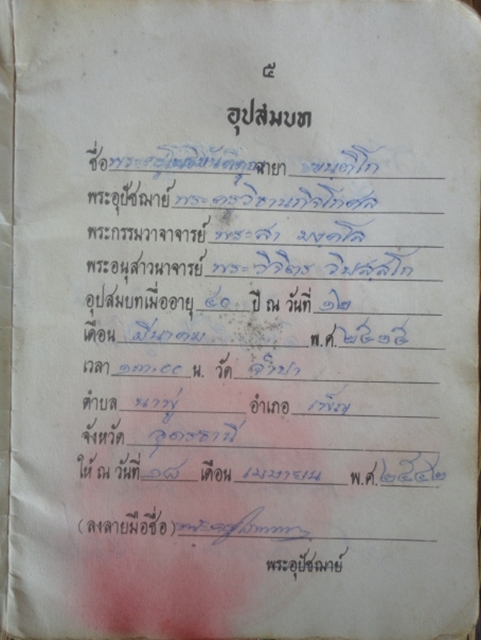 ๕
อุปสมบท
ชื่อ ฉายา ขนฺติโก
พระอุปัชฌาย์ พระครูวิธานกิจโกศล
พระกรรมวาจาจารย์ พระสา มงฺคโล
พระอนุสาวนาจารย์ พระวิจิตร วิปสฺสโก
อุปสมบทเมื่ออายุ ๔๐ ปี ณ วันที่ ๑๒
เดือน มีนาคม พ.ศ.
เวลา ๑๓.๐๐ น. วัด จำปา
ตำบล นาพู่ อำเภอ เพ็ญ
จังหวัด อุดรธานี
ให้ ณ วันที่ ๑๘ เดือน เมษายน พ.ศ. ๒๕๔๒
(ลงลายมือชื่อ)
พระอุปัชฌาย์